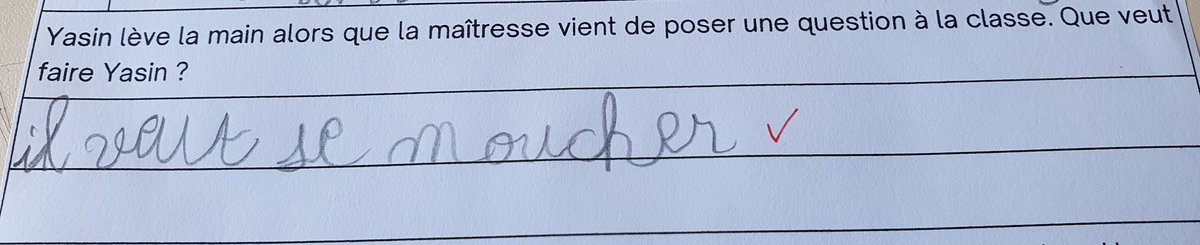 Yasin lève la main alors que la maîtresse vient de poser une question à la classe. Que veut
faire Yasin ?
il veut se moucher ✓